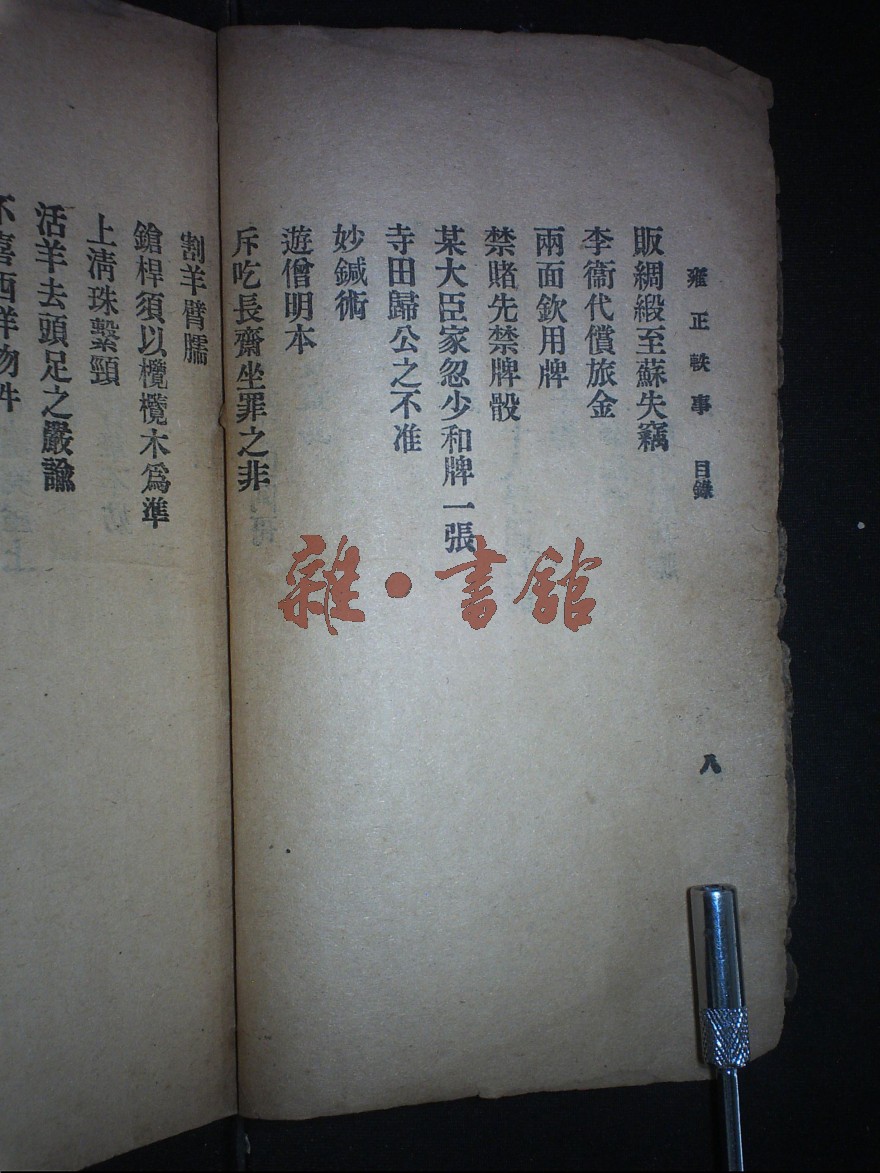 雍正軼事 目錄 八
販綢緞至蘇失竊
李衞代償旅金
兩面欽用牌
禁賭先禁牌骰
某大臣家忽少和牌一張
寺田歸公之不准
妙鍼術
遊僧明本
斥吃長齋坐罪之非
割羊臂臑
鎗桿須以欖欖木爲準
上清珠繫頸
活羊去頭足之嚴諭
不喜西洋物件
雜·書舘